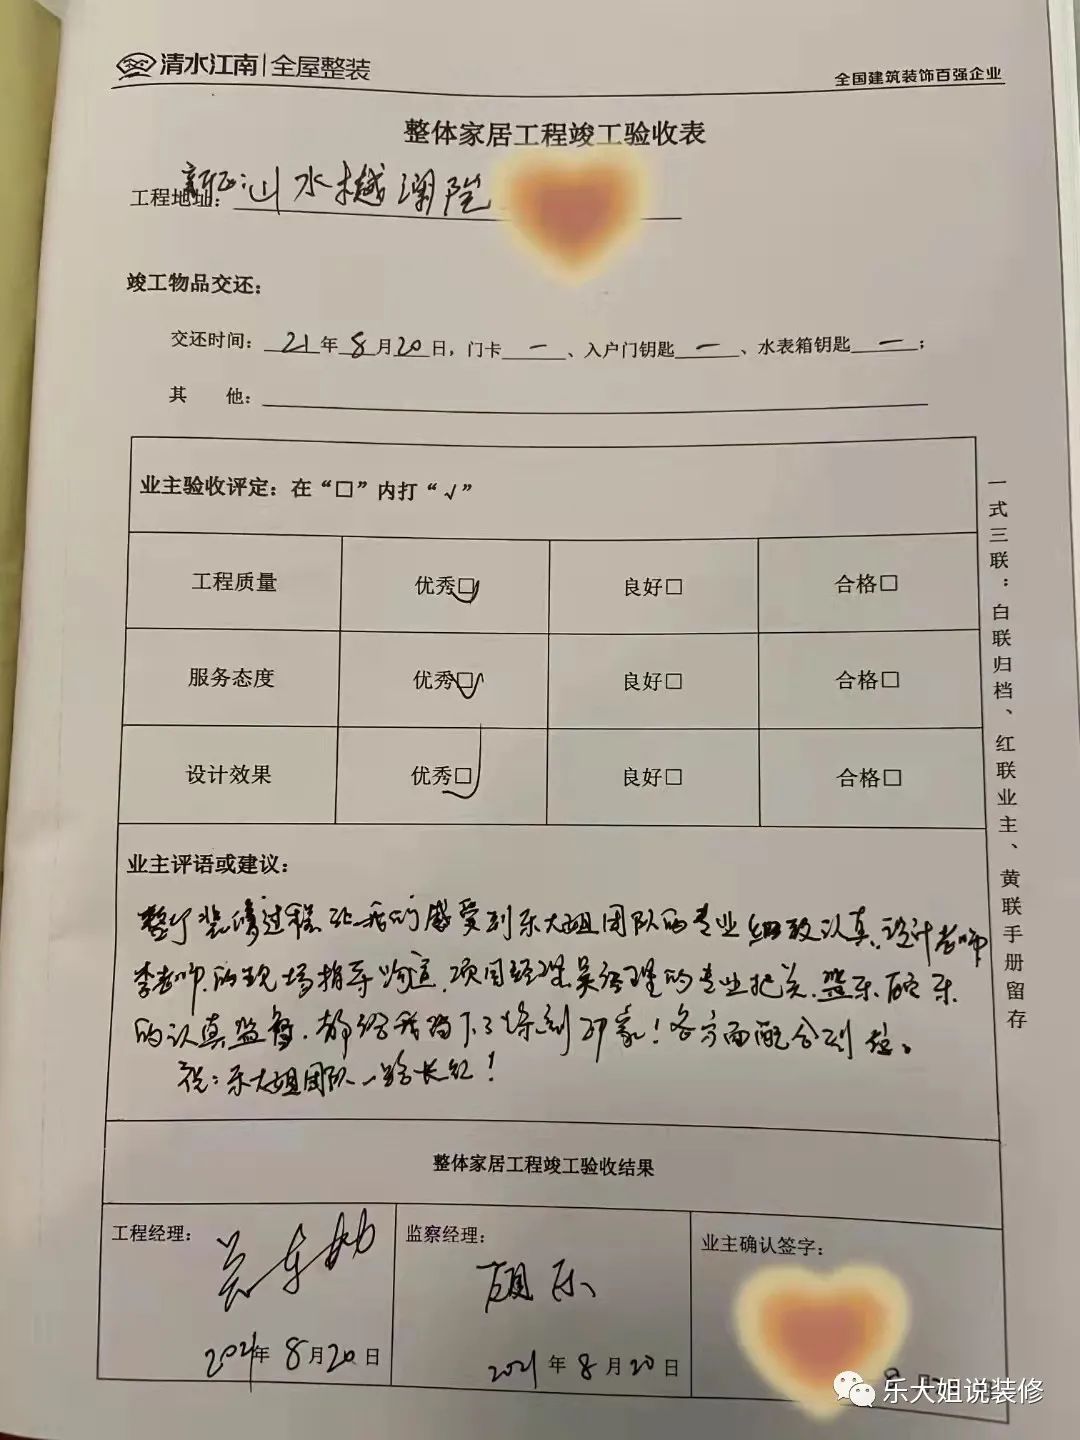 清水江南|全屋整装
全国建筑装饰百强企业
整体家居工程竣工验收表
工程地址: 山水樾澜院
竣工物品交还:
交还时间: 21年8月20日,门卡 一 、入户门钥匙 一 、水表箱钥匙 一 ;
其 他:
业主验收评定:在“□”内打“√”
工程质量 优秀□√ 良好□ 合格□
服务态度 优秀□√ 良好□ 合格□
设计效果 优秀□√ 良好□ 合格□
一式三联:白联归档、红联业主、黄联手册留存
业主评语或建议:
整个装修过程让我们感受到乐大姐团队的专业细致认真、设计老师
李老师的现场指导沟通、项目经理吴经理的专业把关、监乐顾乐
的认真监督,都给我留下了深刻印象!各方面配合到位。
祝:乐大姐团队一路长红!
整体家居工程竣工验收结果
工程经理:
2021年8月20日
监察经理:
顾乐
2021年8月20日
业主确认签字:
乐大姐说装修